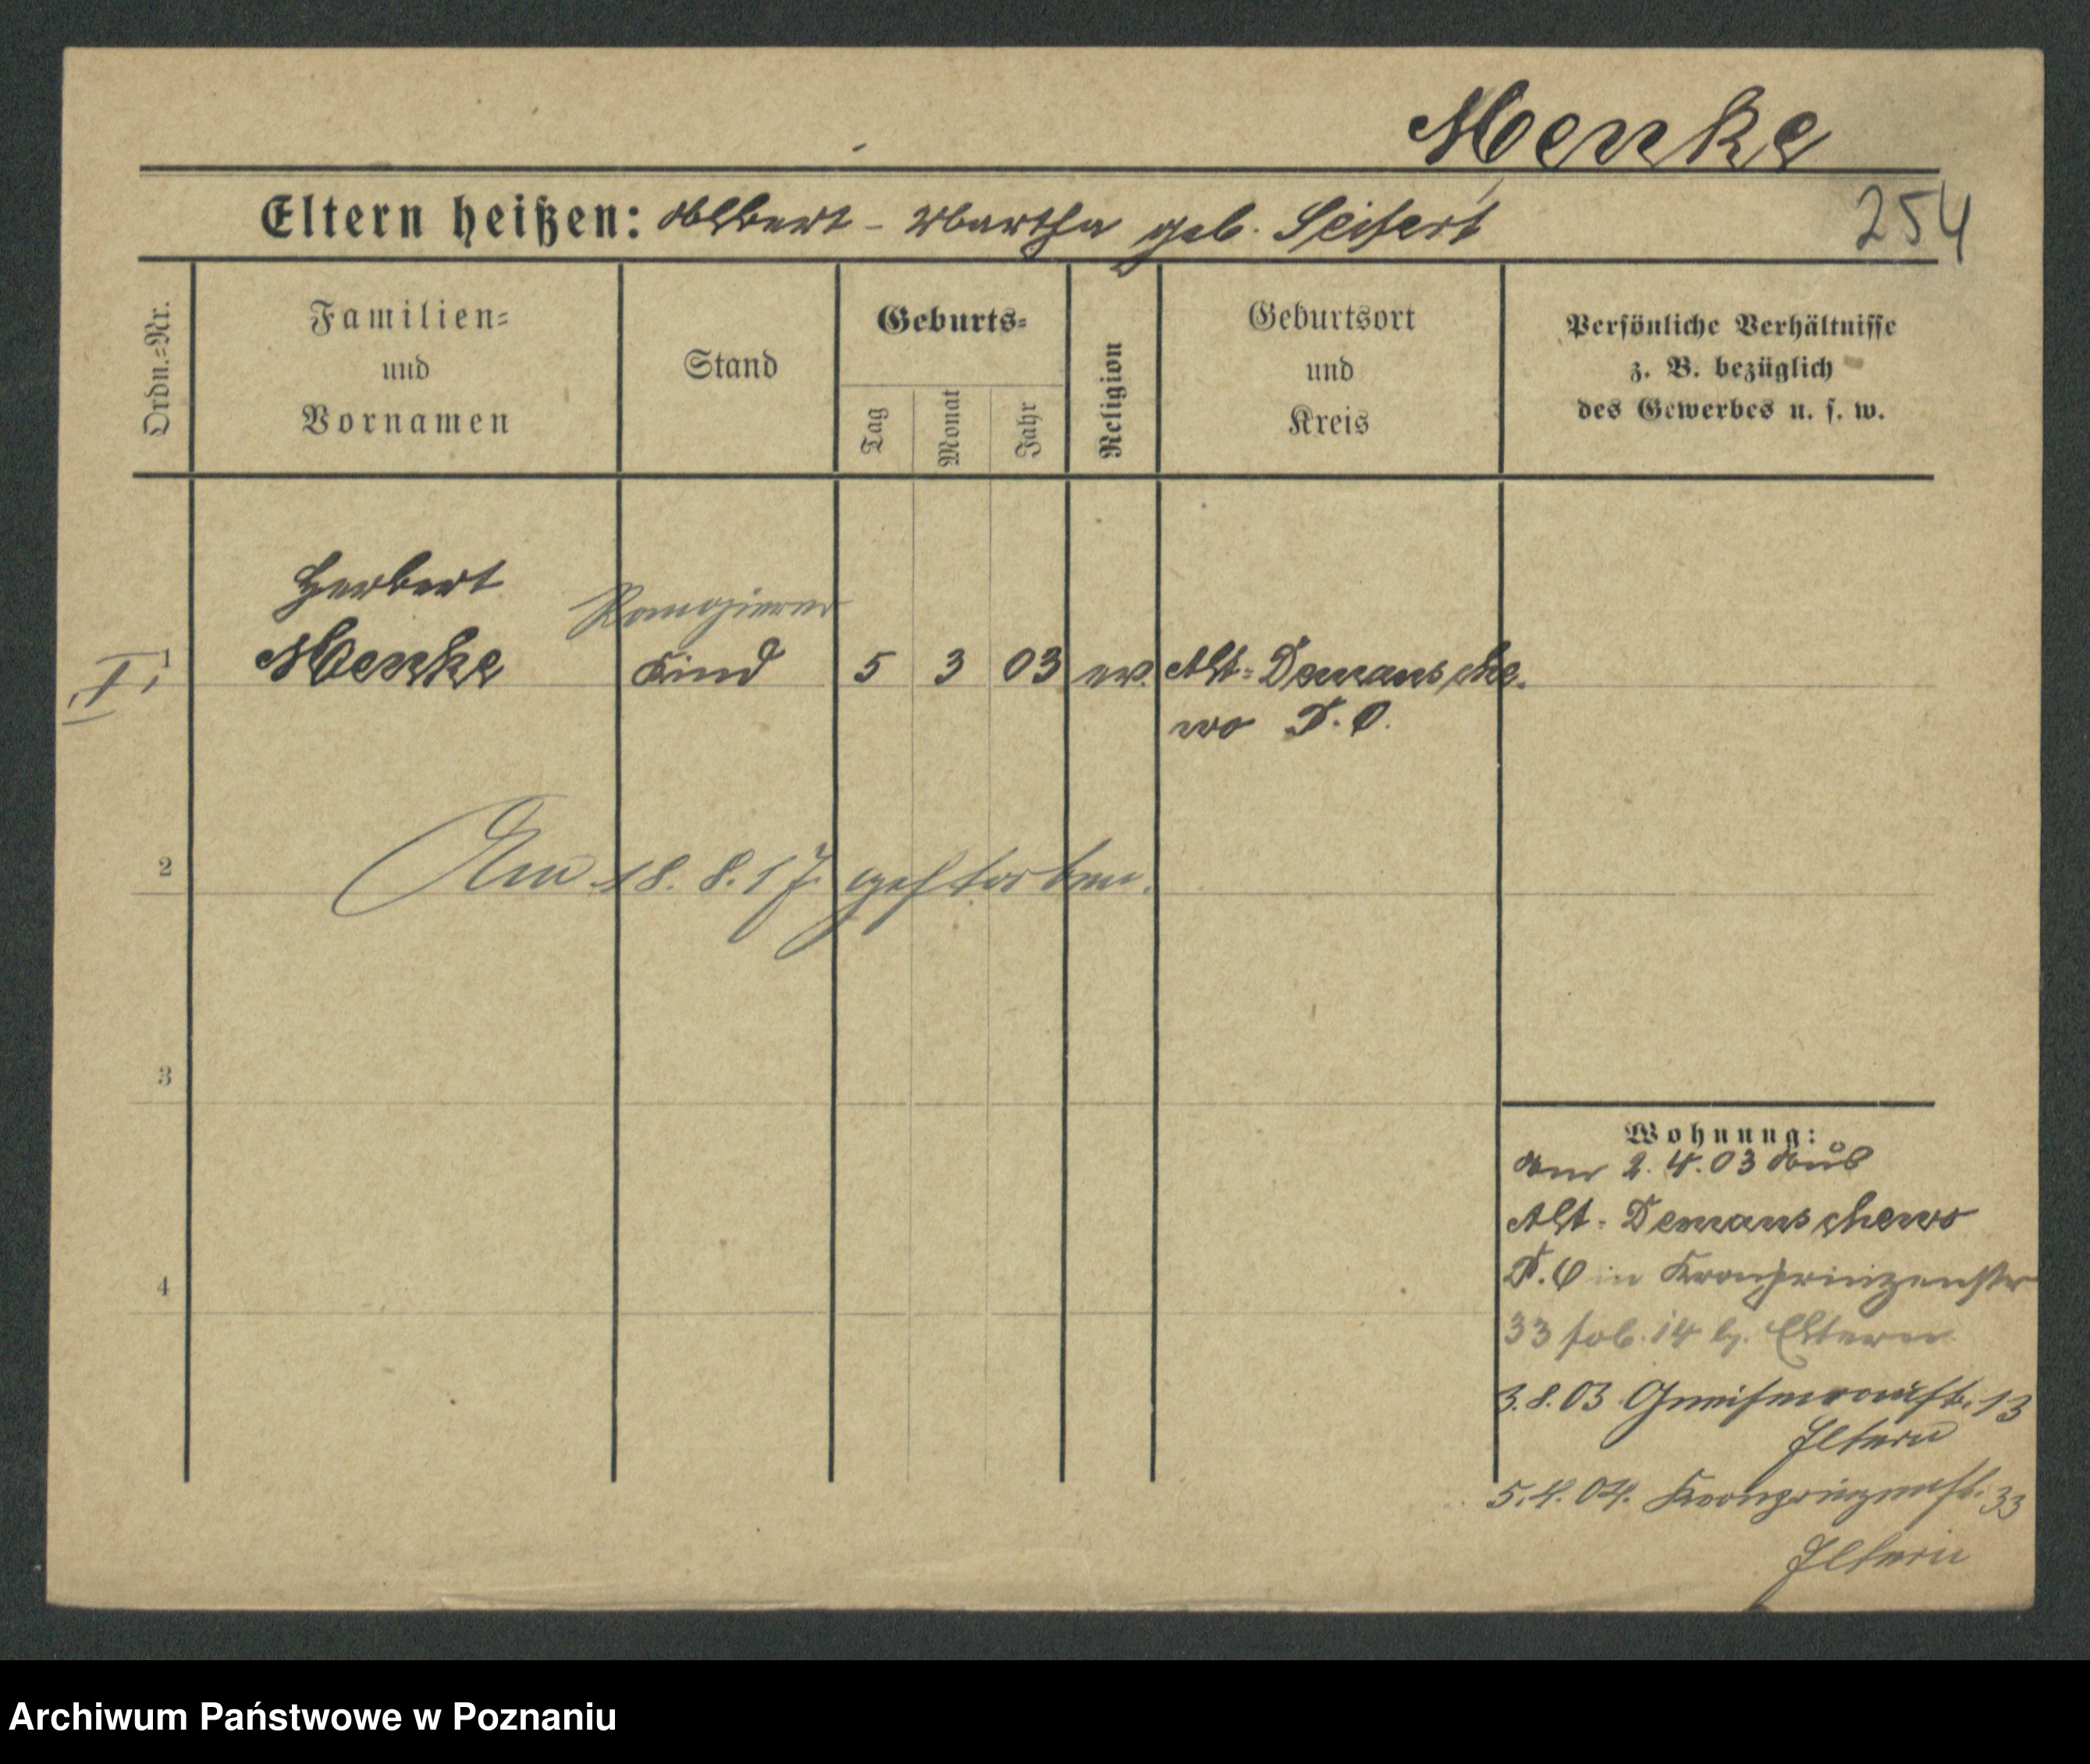 Menke
Eltern heißen: Albert - Martha geb. Seifert
254
Ordn.=Nr.
Familien=
und
Vornamen
Stand
Geburts=
Tag
Monat
Jahr
Religion
Geburtsort
und
Kreis
Persönliche Verhältnisse
z. B. bezüglich
des Gewerbes u. s. w.
Herbert
Rangierer
I, 1 Menke Kind 5 3 03 ev. Alt-Demansche-
wo P. O.
2 Am 18. 8. 17 gestorben.
3
4
Wohnung:
Am 2. 4. 03 aus
Alt-Demanschewo
P. O in Kronprinzenstr
33 fol. 14 b. Eltern
3. 8. 03 Gneisenaustr. 13
Eltern
5. 4. 04. Kronprinzenstr. 33
Eltern
Archiwum Państwowe w Poznaniu